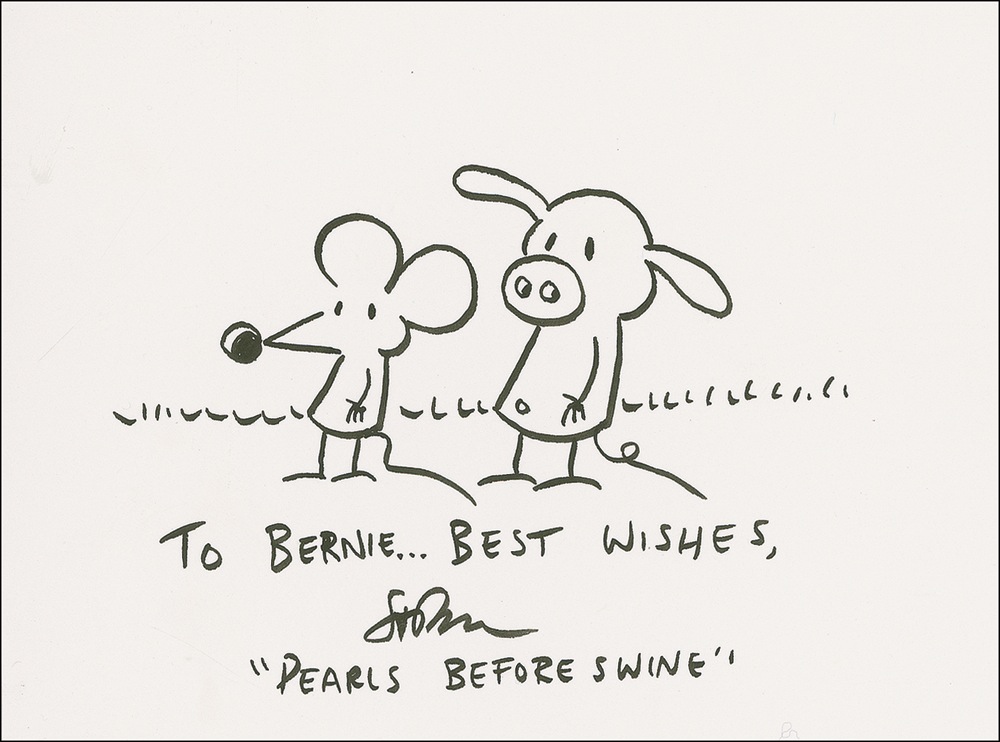 TO BERNIE... BEST WISHES,
"PEARLS BEFORE SWINE"